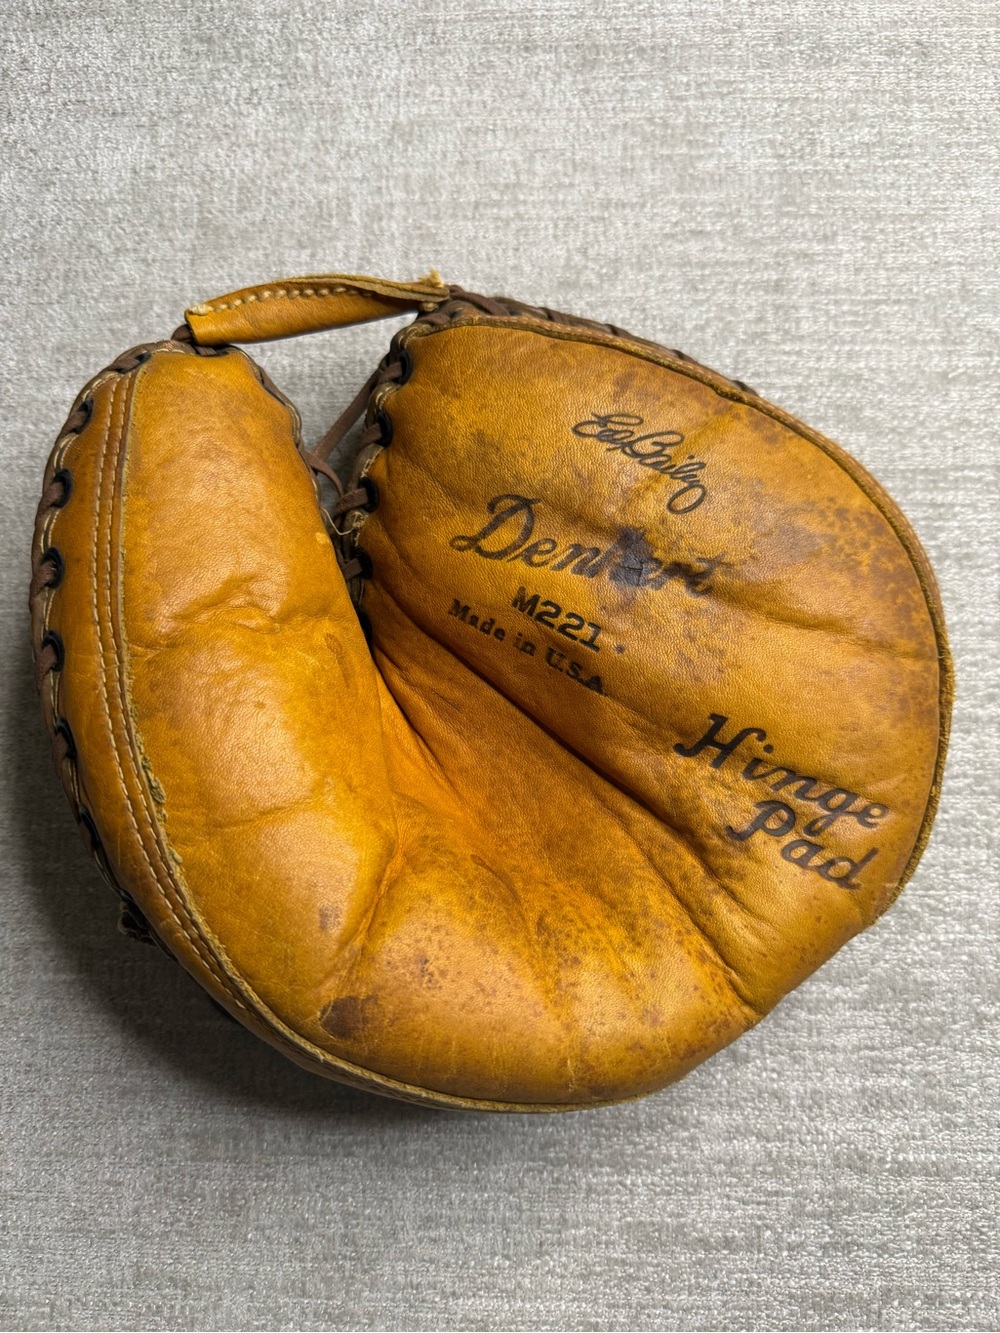 Ed Bailey
Denkert
M221.
Made in U.S.A
Hinge
Pad